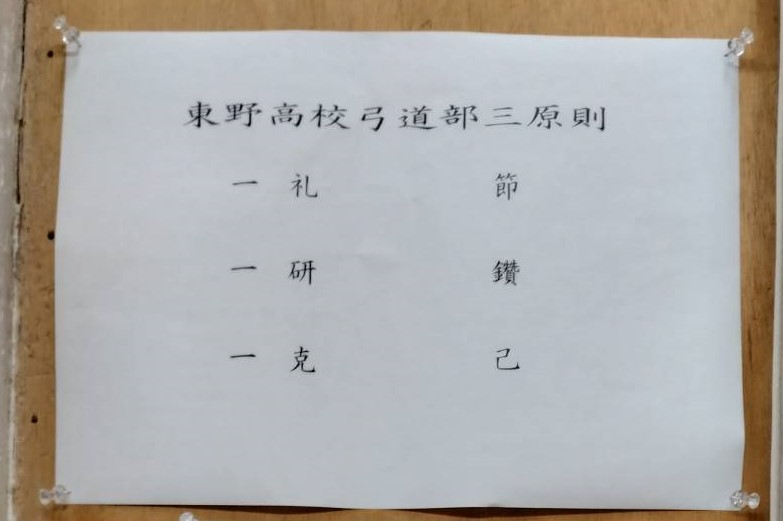 東野高校弓道部三原則
一 礼 節
一 研 鑽
一 克 己